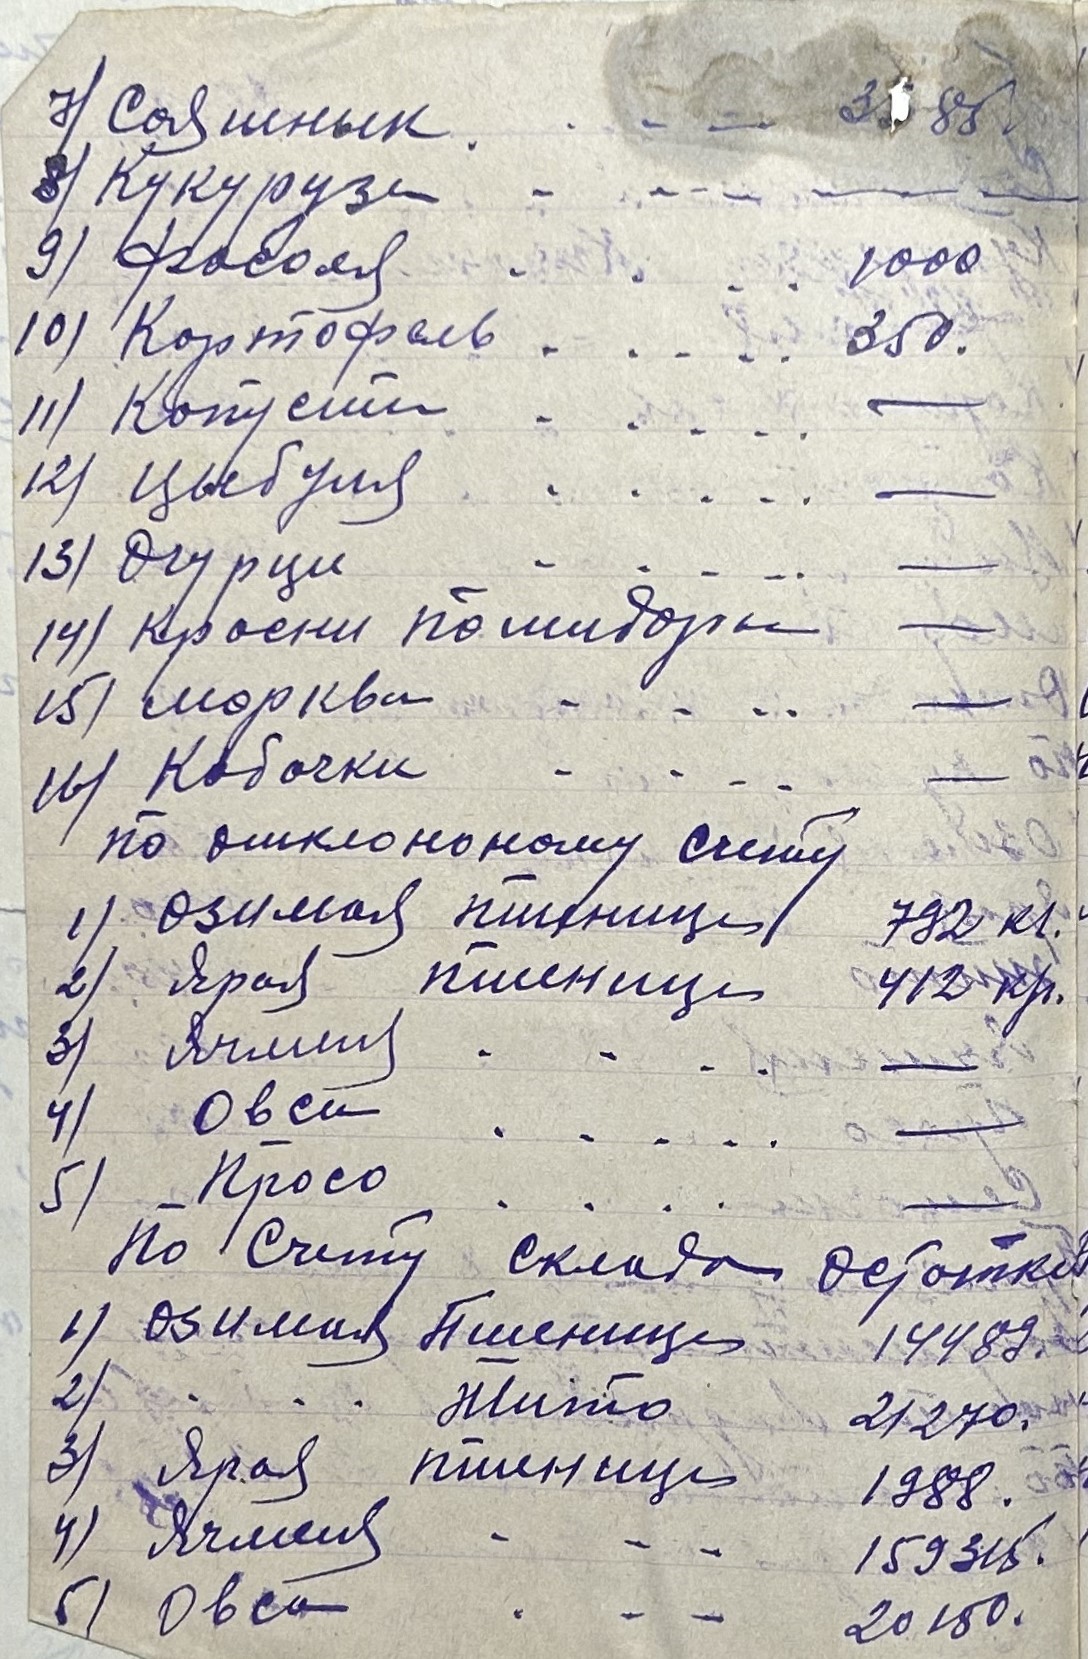 7) Сояшнык . - - - 
8) Кукуруза - - - - —
9) Фасоля . . . . 1000
10) Картофель . . . . . 350.
11) Капуста . . . . . —
12) Цыбуля . . . . . —
13) Огурци - . . . . —
14) Красни помидоры —
15) морква - - . . —
16) Кабачки - - - - —
по счету
1) озимая пшеница 792 кг.
2) Ярая пшеница 412 кг.
3) Ячменя . . . . —
4) Овса . . . . . —
5) Просо . . . . —
По счету склада остатки
1) озимая Пшеница 14489.
2) . . . Жито 21270.
3) Ярая пшеница 1988.
4) Ячменя - - -
5) Овса . - - 20150.